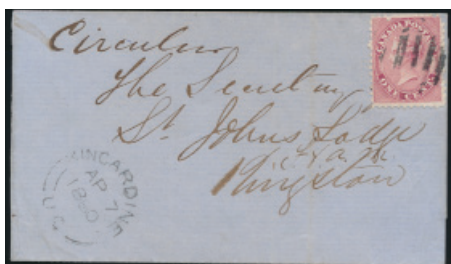 Circular
The Secretary
St Johns Lodge
Kingston
KINCARDINE
AP 7
1860
U.C.
CANADA POSTAGE
ONE CENT